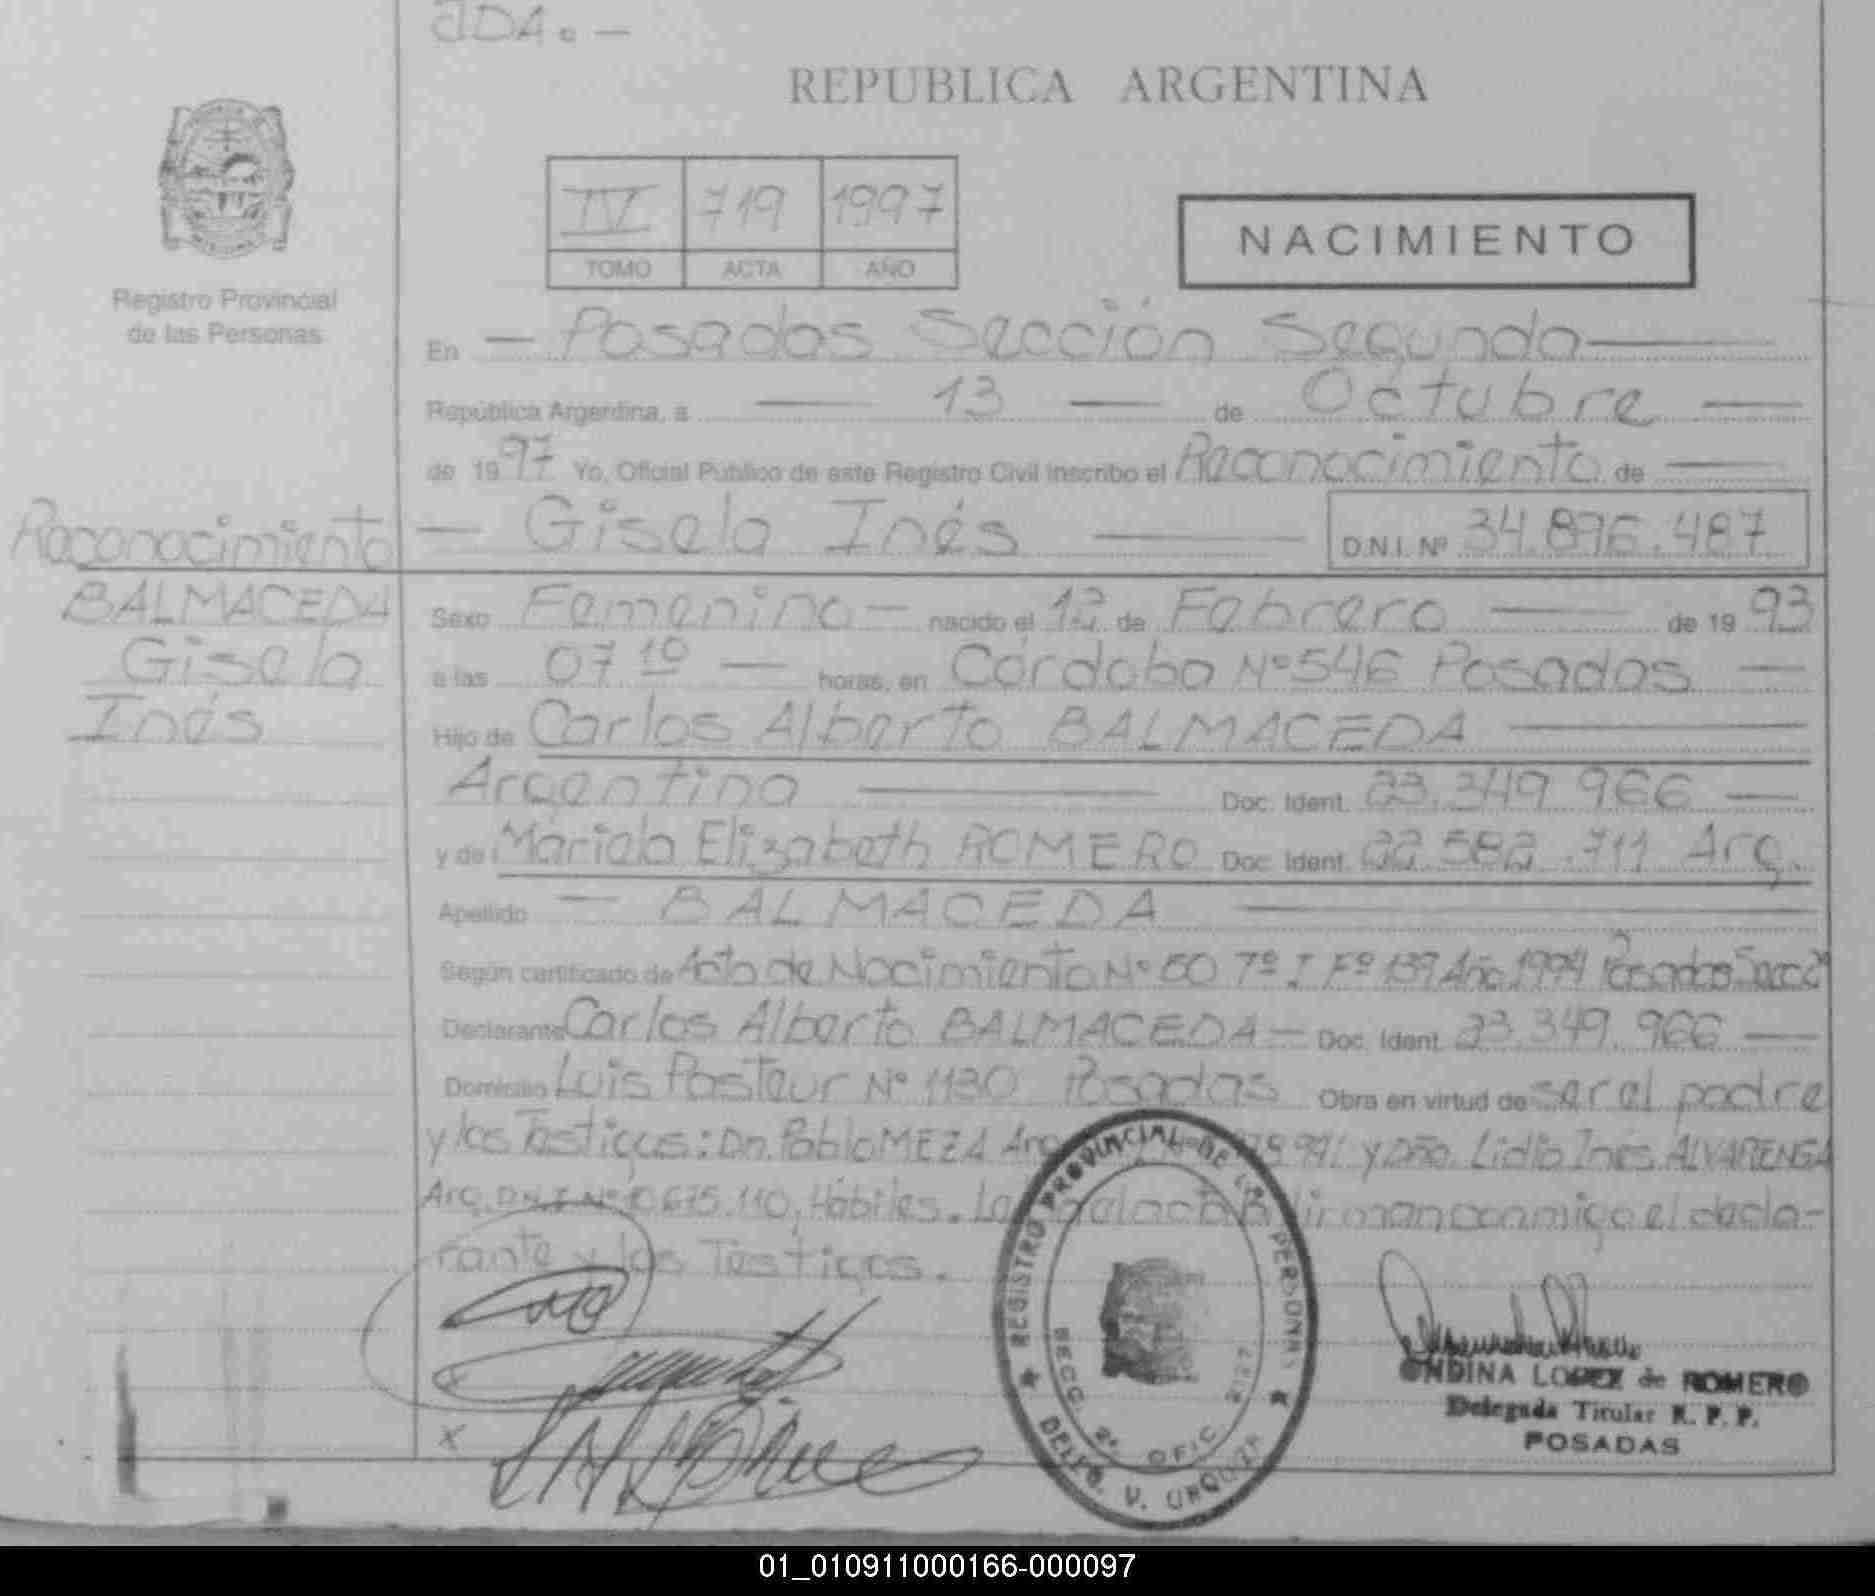 JDA. —
REPUBLICA ARGENTINA
IV 719 1997
TOMO ACTA AÑO
NACIMIENTO
Registro Provincial
de las Personas
En — Posadas Sección Segunda —
República Argentina, a — 13 — de Octubre —
de 1997 Yo, Oficial Público de este Registro Civil inscribo el Reconocimiento de —
— Gisela Inés — D.N.I. Nº 34.896.487
Reconocimiento
BALMACEDA
Gisela
Inés
Sexo Femenino — nacido el 12 de Febrero — de 1993
a las 07 10 — horas, en Córdoba Nº 546 Posadas —
Hijo de Carlos Alberto BALMACEDA —
Argentino — Doc. Ident. 23.349.966 —
y de Mariela Elizabeth ROMERO Doc. Ident. 22.582.711 Arg.
Apellido — BALMACEDA —
Según certificado de Acta de Nacimiento Nº 50 Tº I Fº 139 Año 1994 Posadas Secc 2º
Declarante Carlos Alberto BALMACEDA — Doc. Ident. 23.349.966 —
Domicilio Luis Pasteur Nº 1130 Posadas Obra en virtud de ser el padre
y los Testigos: Dn. Pablo MEZA Arg. y Dña. Lidia Inés ALVARENGA
Arg. D.N.I. Nº 10.675.110, Hábiles. el acta firman conmigo el decla-
rante y los Testigos.
REGISTRO PROVINCIAL DE LAS PERSONAS
SECC. 2ª OFIC. 2127
DELEG. V. URQUIZA
ONDINA LOPEZ de ROMERO
Delegada Titular R. P. P.
POSADAS
01_010911000166-000097